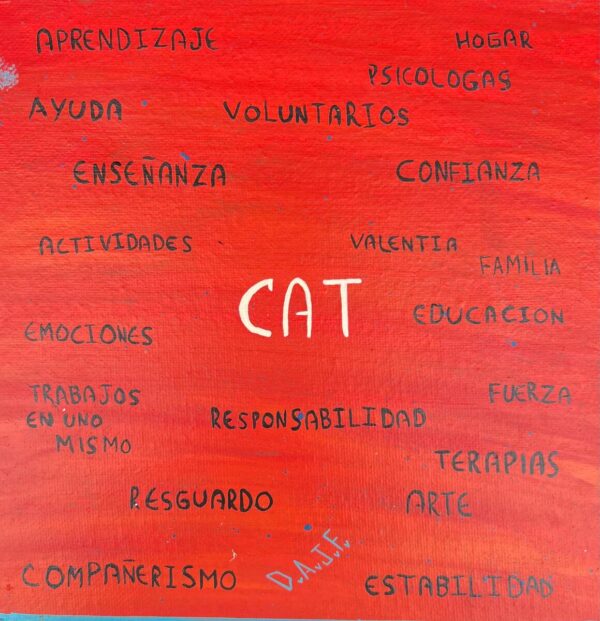 APRENDIZAJE
HOGAR
PSICOLOGAS
AYUDA
VOLUNTARIOS
ENSEÑANZA
CONFIANZA
ACTIVIDADES
VALENTIA
FAMILIA
CAT
EDUCACION
EMOCIONES
TRABAJOS
EN UNO
MISMO
FUERZA
RESPONSABILIDAD
TERAPIAS
RESGUARDO
ARTE
D.A.J.F.
COMPAÑERISMO
ESTABILIDAD